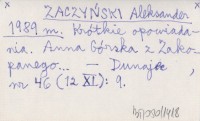 ZACZYŃSKI Aleksander
1989 m. Krótkie opowiada-
nia. Anna Górska z Zako-
panego... — Dunajec,
nr 46 (12 XI): 9.